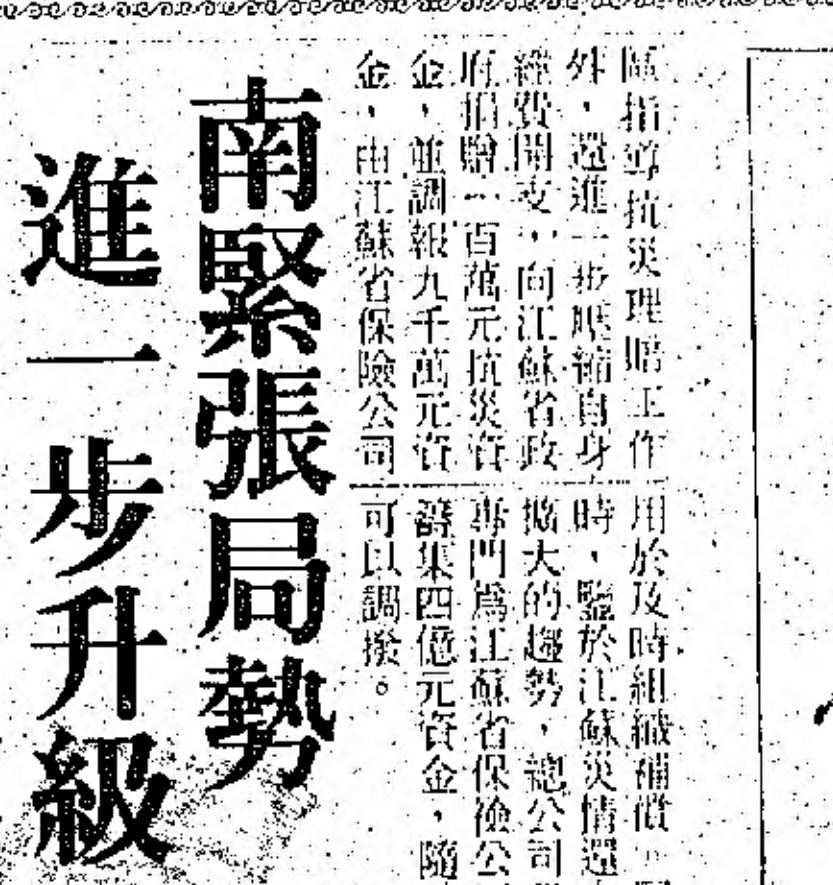 區指導抗災理賠工作
外，還進一步壓縮自身
經費開支，向江蘇省政
府捐贈一百萬元抗災資
金，並調報九千萬元資
金，由江蘇省保險公司
用於及時組織補償。
時，鑒於江蘇災情還
擴大的趨勢，總公司
專門爲江蘇省保險公
籌集四億元資金，隨
可以調撥。
南緊張局勢
進一步升級